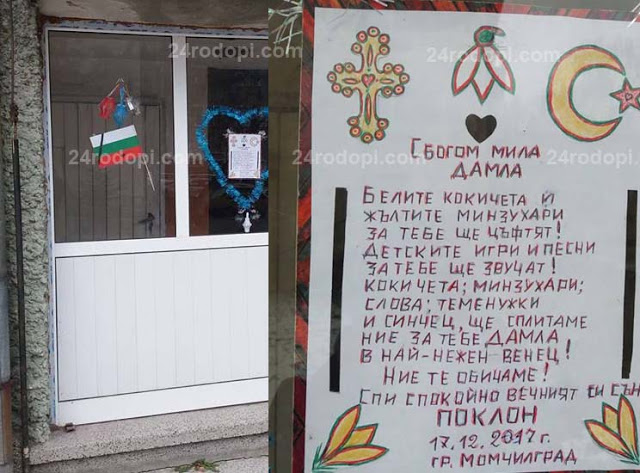 24rodopi.com
24rodopi.com
24rodopi.com
24rodopi.com
24rodopi.com
24rodopi.com
24rodopi.com
24rodopi.com
СБОГОМ МИЛА
ДАМЛА
БЕЛИТЕ КОКИЧЕТА И
ЖЪЛТИТЕ МИНЗУХАРИ
ЗА ТЕБЕ ЩЕ ЦЪФТЯТ!
ДЕТСКИТЕ ИГРИ И ПЕСНИ
ЗА ТЕБЕ ЩЕ ЗВУЧАТ!
КОКИЧЕТА; МИНЗУХАРИ;
СЛОВА; ТЕМЕНУЖКИ
И СИНЧЕЦ, ЩЕ СПЛИТАМЕ
НИЕ ЗА ТЕБЕ ДАМЛА
В НАЙ-НЕЖЕН ВЕНЕЦ!
НИЕ ТЕ ОБИЧАМЕ!
СПИ СПОКОЙНО ВЕЧНИЯТ СИ СЪН
ПОКЛОН
17.12.2017 г.
гр. МОМЧИЛГРАД